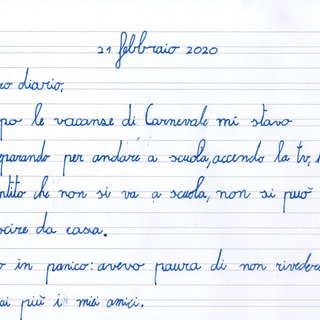 21 febbraio 2020
ro diario,
po le vacanze di Carnevale mi stavo
eparando per andare a scuola, accendo la tv,
ntito che non si va a scuola, non si può
scire da casa.
o in panico: avevo paura di non rivedere
ai più i miei amici.